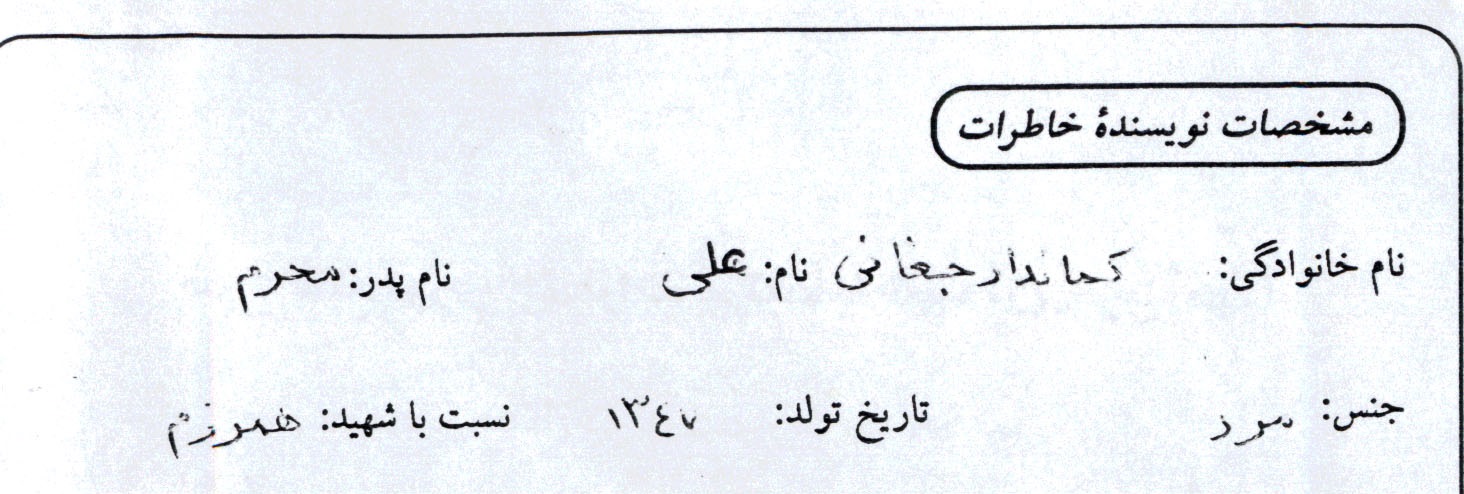 مشخصات نویسندهٔ خاطرات
نام خانوادگی: کماندار جغانی نام: علی نام پدر: محرم
جنس: مرد تاریخ تولد: ۱۳۴۷ نسبت با شهید: همرزم